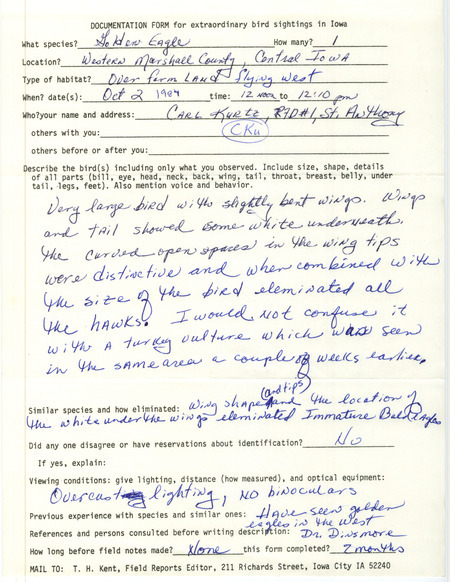 DOCUMENTATION FORM for extraordinary bird sightings in Iowa
What species? Golden Eagle How many? 1
Location? Western Marshall County, Central Iowa
Type of habitat? Over farm LAND flying west
When? date(s): Oct 2 1984 time: 12 noon to 12:10 pm
Who?your name and address: CARL KURTZ, RTD#1, St. Anthony
others with you: CKu
others before or after you:
Describe the bird(s) including only what you observed. Include size, shape, details
of all parts (bill, eye, head, neck, back, wing, tail, throat, breast, belly, under
tail, legs, feet). Also mention voice and behavior.
Very large bird with slightly bent wings. Wings
and tail showed some white underneath.
the curved open spaces in the wing tips
were distinctive and when combined with
the size of the bird eleminated all
the hawks. I would not confuse it
with a turkey vulture which was seen
in the same area a couple of weeks earlier.
Similar species and how eliminated: wing shape (and tips) and the location of
the white under the wings eleminated Immature Bald Eagles
Did any one disagree or have reservations about identification? No
If yes, explain:
Viewing conditions: give lighting, distance (how measured), and optical equipment:
Overcast lighting, no binoculars
Previous experience with species and similar ones: Have seen golden
eagles in the West
References and persons consulted before writing description: Dr. Dinsmore
How long before field notes made? None this form completed? 2 months
MAIL TO: T. H. Kent, Field Reports Editor, 211 Richards Street, Iowa City IA 52240